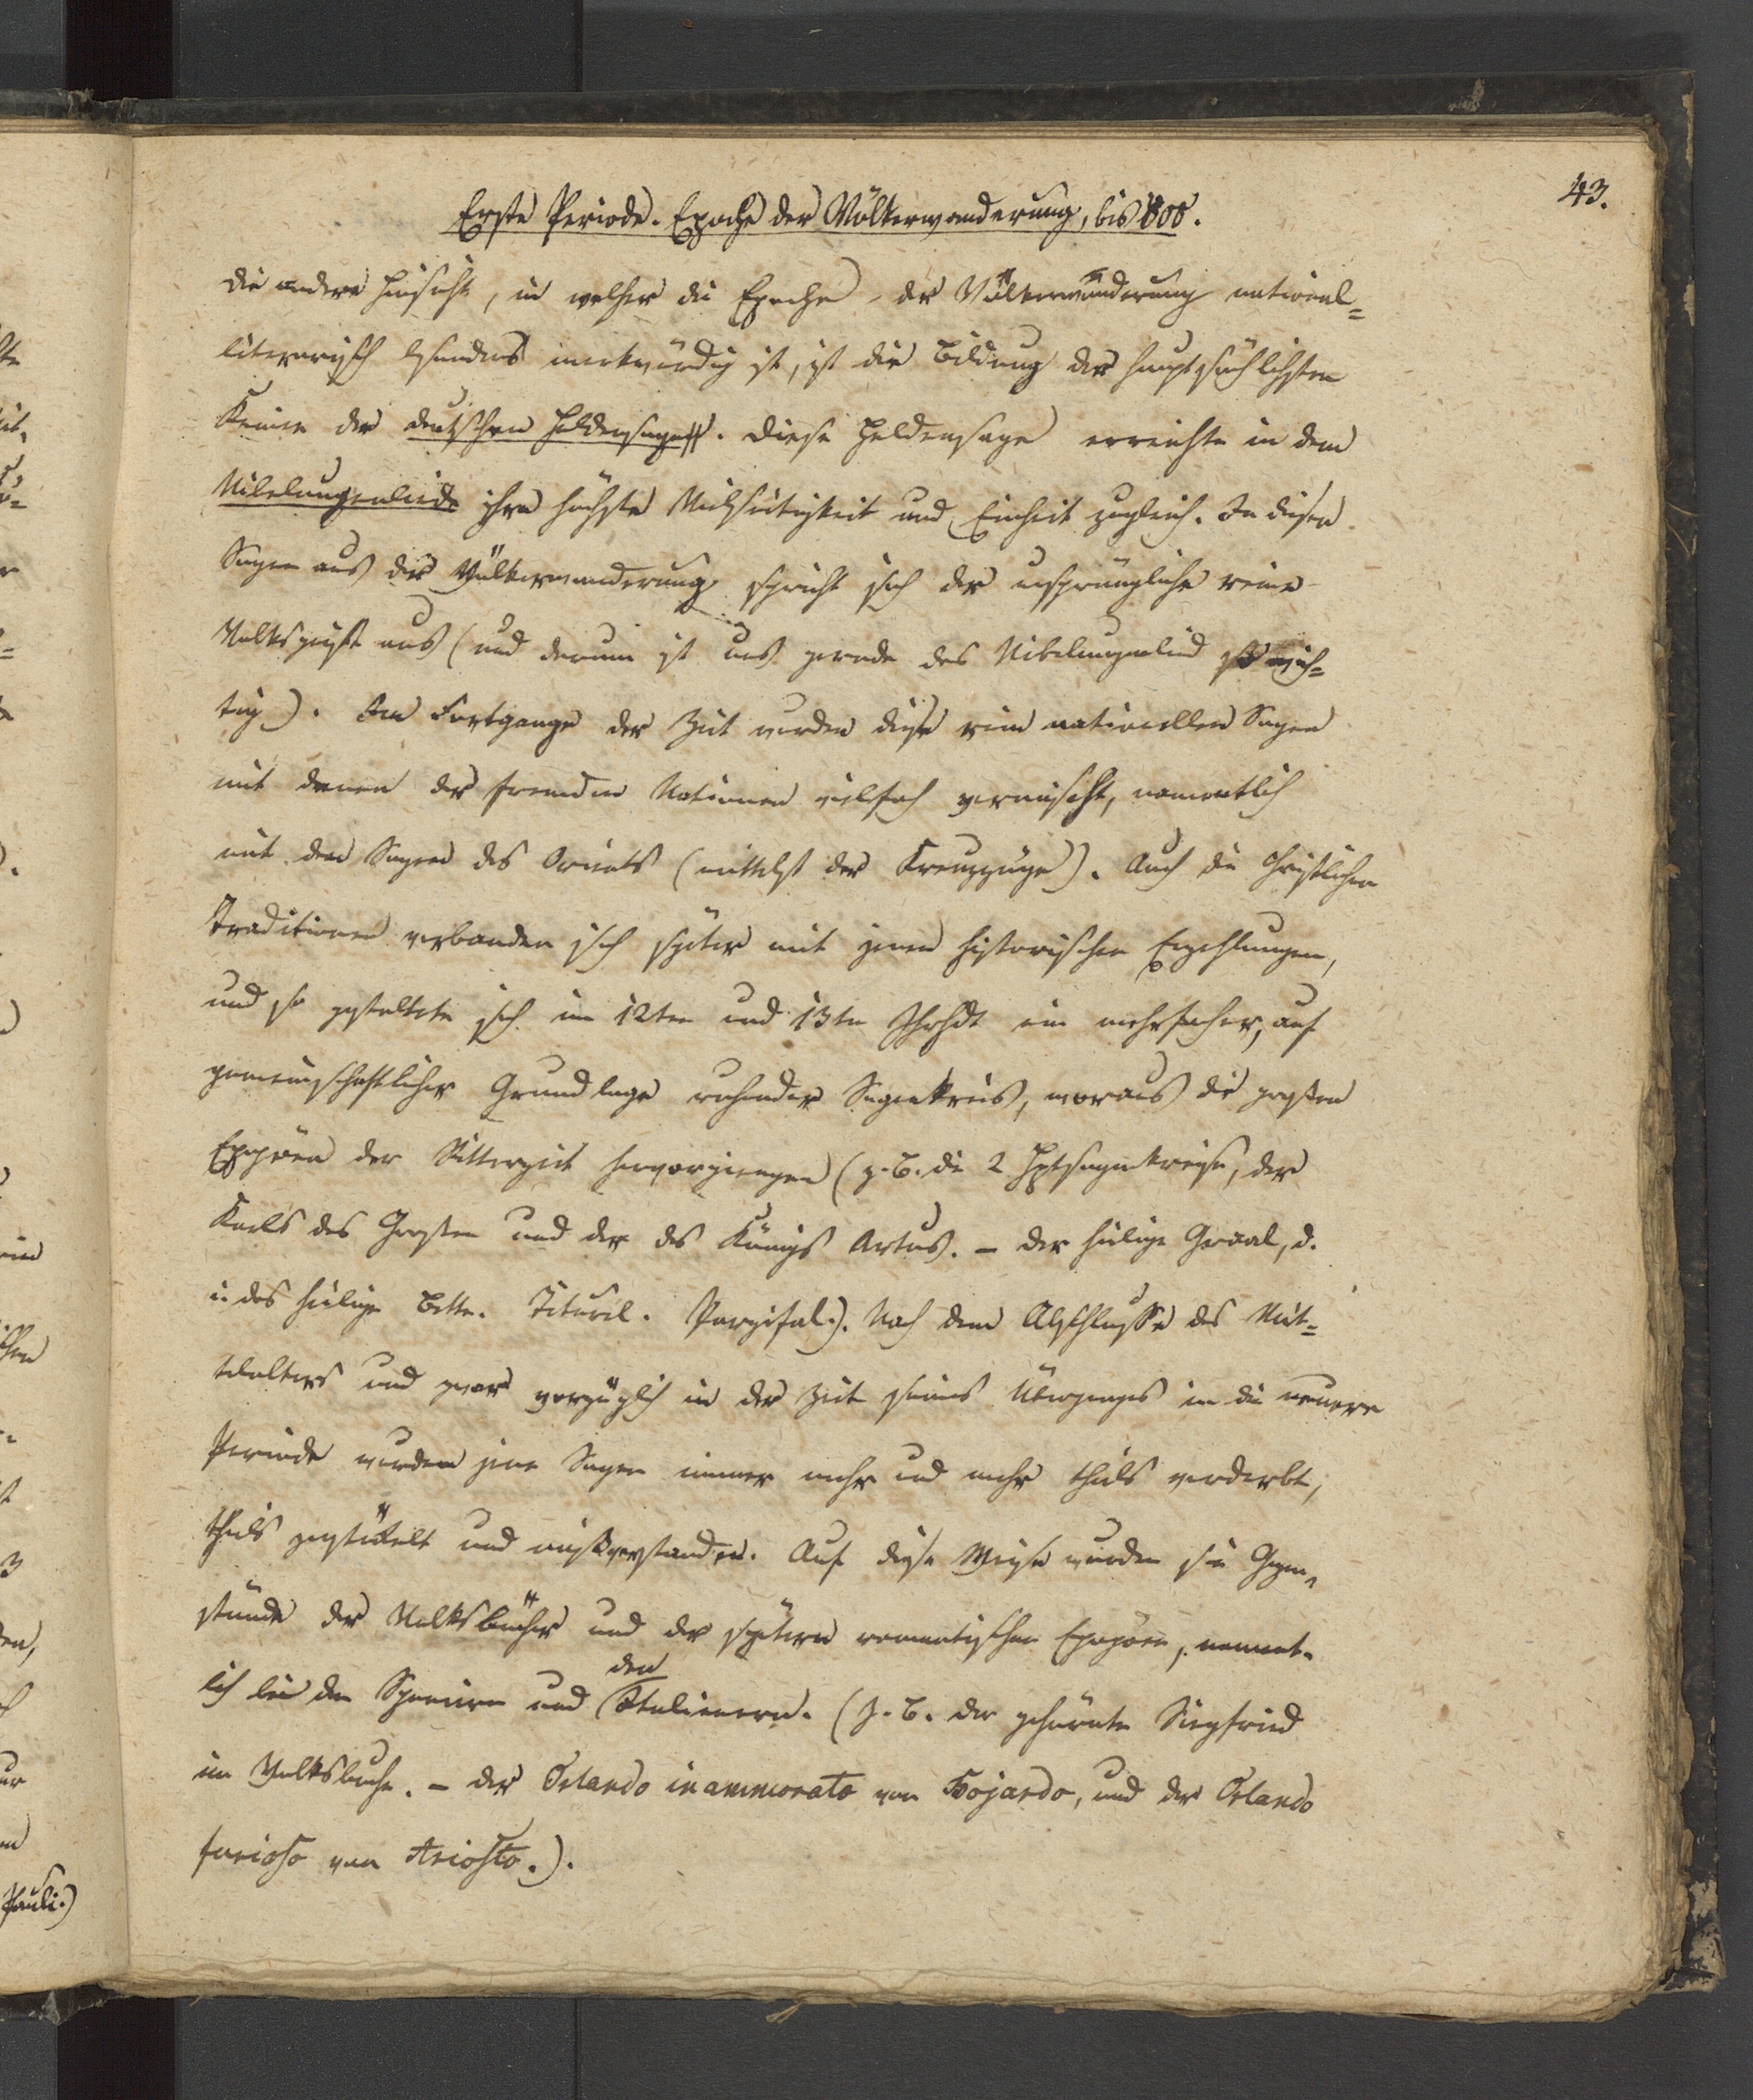 43.
Erste Periode. Epoche der Völkerwanderung, bis 800.
Die andere Hinsicht, in welcher die Epoche der Völkerwanderung national-
literarisch besonders merkwürdig ist, ist die Bildung der hauptsächlichsten
Keime der deutschen Heldensage. Diese Heldensage erreichte in dem
Nibelungenliede ihre höchste Vielseitigkeit und Einheit zugleich. In diesen
Sagen aus der Völkerwanderung spricht sich der ursprüngliche reine
Volksgeist aus (und darum ist uns gerade das Nibelungenlied so wich-
tig). Im Fortgange der Zeit wurden diese rein nationellen Sagen
mit denen der fremden Nationen vielfach vermischt, namentlich
mit den Sagen des Orients (mittelst der Kreuzzüge). Auch die christlichen
Traditionen verbanden sich später mit jenen historischen Erzehlungen,
und so gestaltete sich im 12ten und 13ten Jhrhdt ein mehrfacher, auf
gemeinschaftlicher Grundlage ruhender Sagenkreis, woraus die grossen
Epopöen der Ritterzeit hervorgiengen (z. B. die 2 Hptsagenkreise, der
Karls des Grossen und der des Königs Artus. – der heilige Graal, d.
i. das heilige Titurel. Parzifal.). Nach dem Abschlusse des Mit-
telalters und zwar vorzüglich in der Zeit seines Überganges in die neuere
Periode wurden jene Sagen immer mehr und mehr theils verderbt,
theils zerstückelt und missverstanden. Auf diese Weise wurden sie Gegen-
stände der Volksbücher und der spätern romantischen Epopöen, nament-
lich bei den Spaniern und den Italienern. (z. B. der gehörnte Siegfried
im Volksbuche. – der Orlando inammorato von Bojardo, und der Orlando
furioso von Ariosto.).
Pauli.)